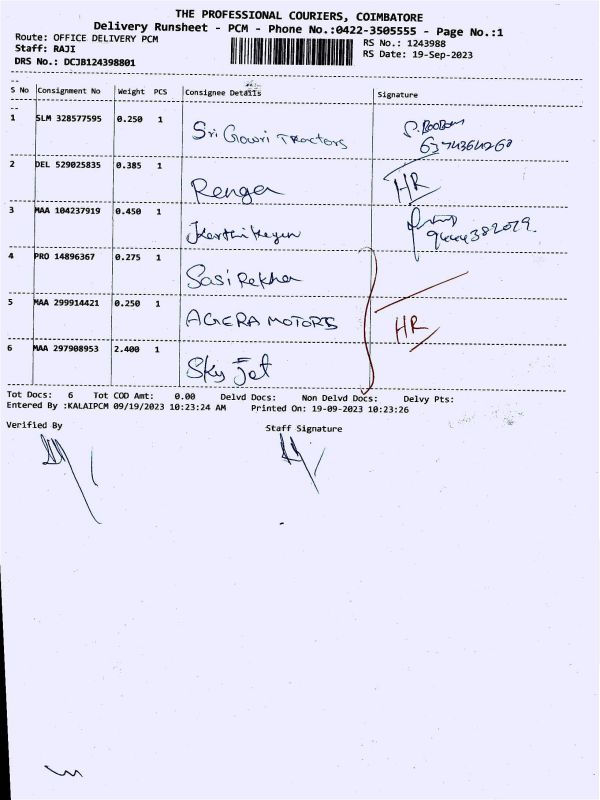 THE PROFESSIONAL COURIERS, COIMBATORE
Delivery Runsheet - PCM - Phone No.:0422-3505555 - Page No.:1
Route: OFFICE DELIVERY PCM RS No.: 1243988
Staff: RAJI RS Date: 19-Sep-2023
DRS No.: DCJB124398801
S No Consignment No Weight PCS Consignee Details Signature
1 SLM 328577595 0.250 1 Sri Gowri Tractors
2 DEL 529025835 0.385 1 Renga HR
3 MAA 104237919 0.450 1 Karthikeyan
4 PRO 14896367 0.275 1 Sasi Rekha
5 MAA 299914421 0.250 1 AGERA MOTORS HR
6 MAA 297908953 2.400 1 Sky Jet
Tot Docs: 6 Tot COD Amt: 0.00 Delvd Docs: Non Delvd Docs: Delvy Pts:
Entered By :KALAIPCM 09/19/2023 10:23:24 AM Printed On: 19-09-2023 10:23:26
Verified By Staff Signature